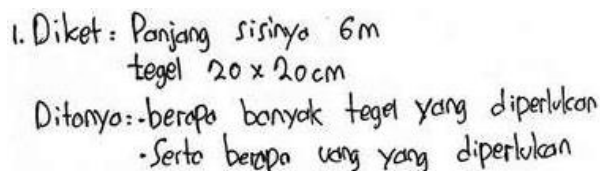 1. Diket : Panjang sisinya 6m
tegel 20 x 20 cm
Ditanya:-berapa banyak tegel yang diperlukan
-Serta berapa uang yang diperlukan